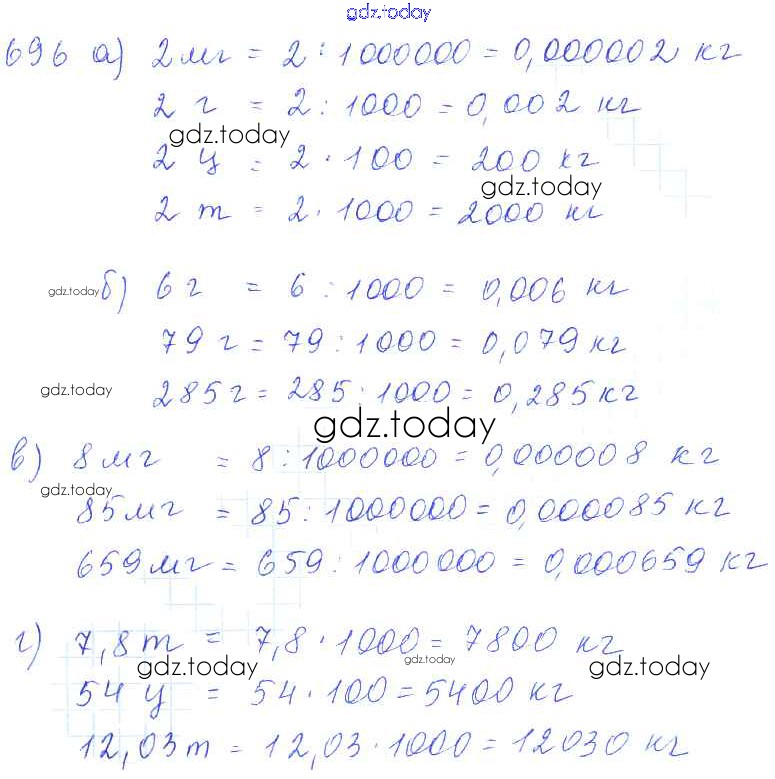 gdz.today
696 а) 2 мг = 2 : 1000000 = 0,000002 кг
2 г = 2 : 1000 = 0,002 кг
gdz.today
2 ц = 2 · 100 = 200 кг
gdz.today
2 т = 2 · 1000 = 2000 кг
gdz.today б) 6 г = 6 : 1000 = 0,006 кг
79 г = 79 : 1000 = 0,079 кг
gdz.today 285 г = 285 : 1000 = 0,285 кг
gdz.today
в) 8 мг = 8 : 1000000 = 0,000008 кг
gdz.today
85 мг = 85 : 1000000 = 0,000085 кг
659 мг = 659 : 1000000 = 0,000659 кг
г) 7,8 т = 7,8 · 1000 = 7800 кг
gdz.today gdz.today gdz.today
54 ц = 54 · 100 = 5400 кг
12,03 т = 12,03 · 1000 = 12030 кг